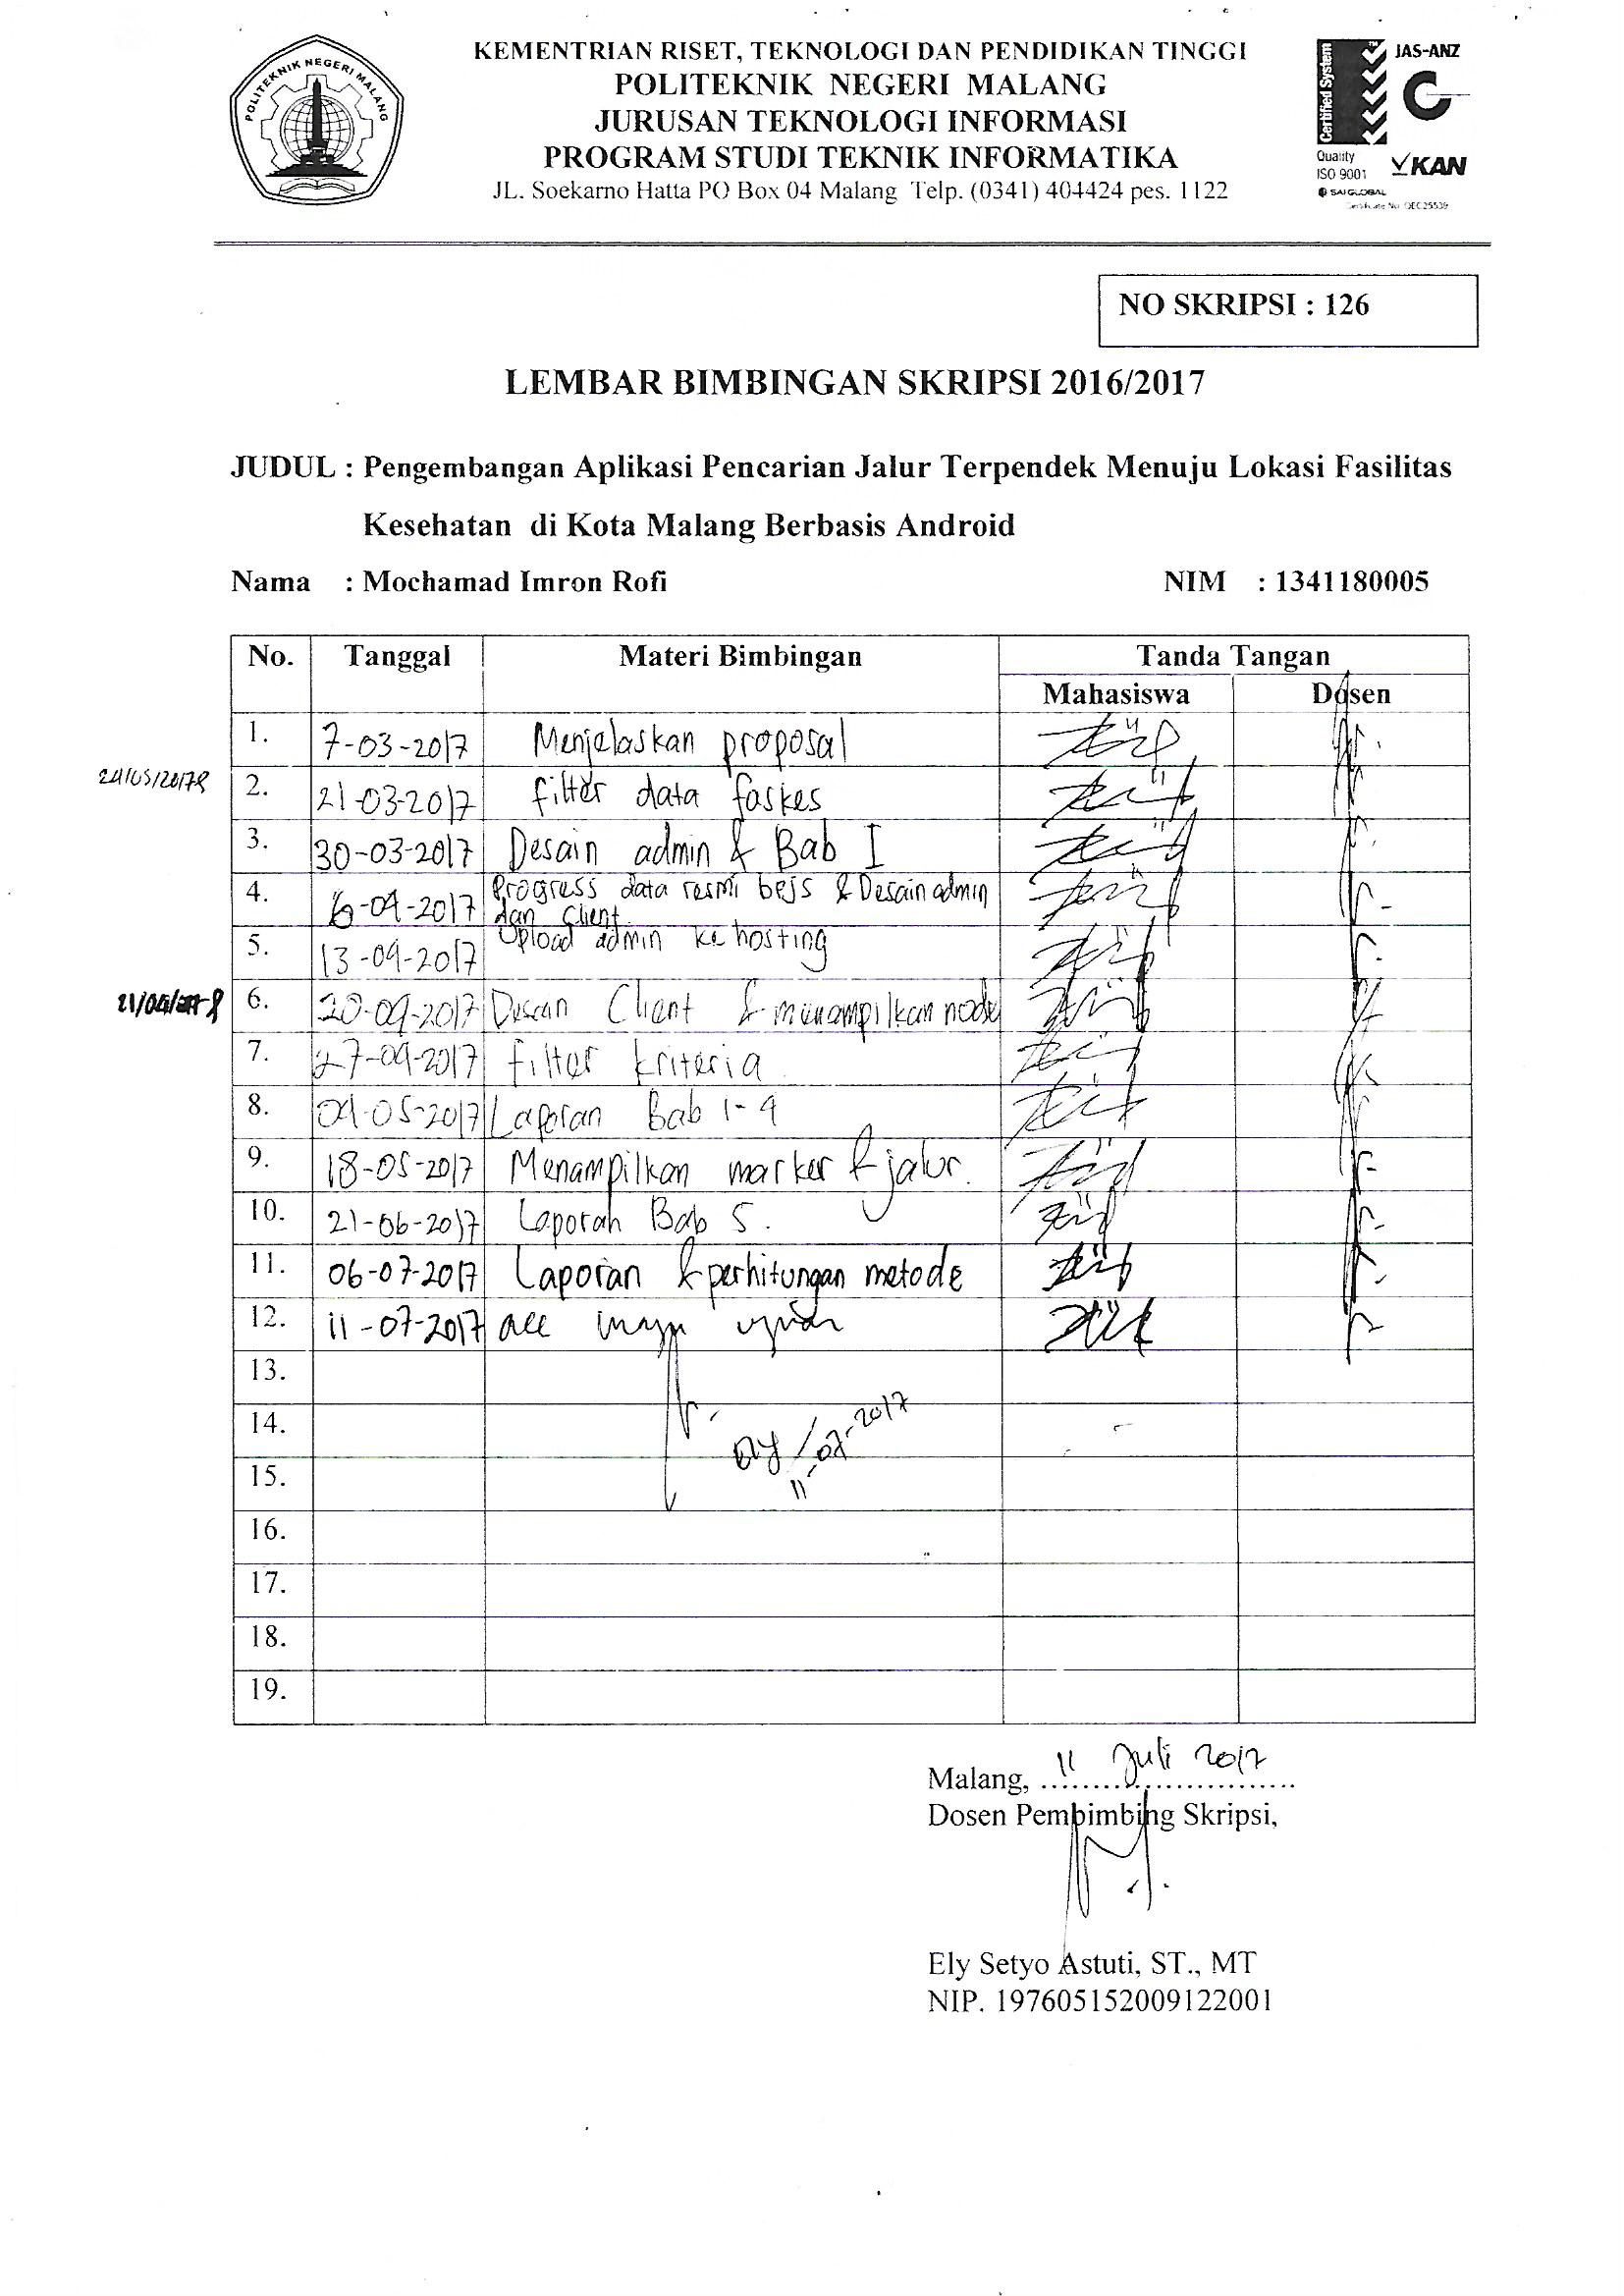 POLITEKNIK NEGERI MALANG
KEMENTRIAN RISET, TEKNOLOGI DAN PENDIDIKAN TINGGI
POLITEKNIK NEGERI MALANG
JURUSAN TEKNOLOGI INFORMASI
PROGRAM STUDI TEKNIK INFORMATIKA
JL. Soekarno Hatta PO Box 04 Malang Telp. (0341) 404424 pes. 1122
Certified System
JAS-ANZ
Quality
ISO 9001
KAN
SAI GLOBAL
NO SKRIPSI : 126
LEMBAR BIMBINGAN SKRIPSI 2016/2017
JUDUL : Pengembangan Aplikasi Pencarian Jalur Terpendek Menuju Lokasi Fasilitas
Kesehatan di Kota Malang Berbasis Android
Nama : Mochamad Imron Rofi NIM : 1341180005
No. Tanggal Materi Bimbingan Tanda Tangan
Mahasiswa Dosen
1. 7-03-2017 Menjelaskan proposal
2. 21-03-2017 filter data faskes
3. 30-03-2017 Desain admin & Bab I
4. 6-04-2017 Progress data resmi bpjs & Desain admin
dan Client
5. 13-04-2017 Upload admin ke hosting
6. 20-04-2017 Desain Client & menampilkan node
7. 27-04-2017 filter kriteria
8. 04-05-2017 Laporan Bab 1-4
9. 18-05-2017 Menampilkan marker & jalur.
10. 21-06-2017 Laporan Bab 5.
11. 06-07-2017 Laporan & perhitungan metode
12. 11-07-2017 acc maju ujian
13.
14. Ely / 11-07-2017
15.
16.
17.
18.
19.
Malang, 11 Juli 2017
Dosen Pembimbing Skripsi,
Ely Setyo Astuti, ST., MT
NIP. 197605152009122001